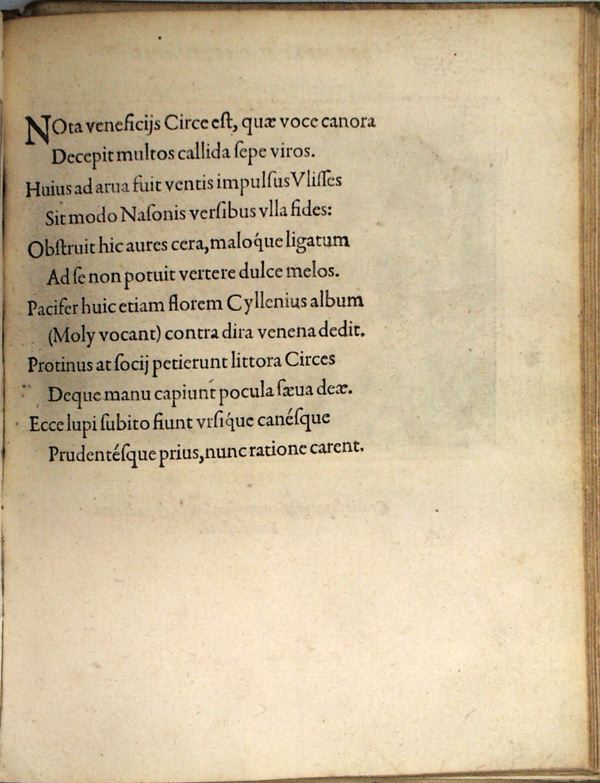 NOta veneficijs Circe est, quæ voce canora
Decepit multos callida sepe viros.
Huius ad arua fuit ventis impulsus Vlisses
Sit modo Nasonis versibus vlla fides:
Obstruit hic aures cera, maloq́ue ligatum
Ad se non potuit vertere dulce melos.
Pacifer huic etiam florem Cyllenius album
(Moly vocant) contra dira venena dedit.
Protinus at socij petierunt littora Circes
Deque manu capiunt pocula sæua deæ.
Ecce lupi subito fiunt vrsiq́ue canésque
Prudentésque prius, nunc ratione carent.